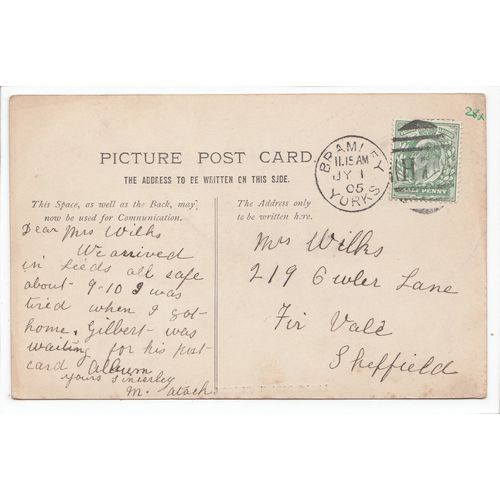 28A
PICTURE POST CARD.
THE ADDRESS TO BE WRITTEN ON THIS SIDE.
This Space, as well as the Back, may
now be used for Communication.
Dear Mrs Wilks
We arrived
in Leeds all safe
about 9-10 I was
tired when I got
home. Gilbert was
waiting for his post
card Album
yours Sincerley
M.
The Address only
to be written here.
Mrs Wilks
219 Owler Lane
Fir Vale
Sheffield
BRAMLEY
11.15 AM
JY 1
05
YORKS
PENNY